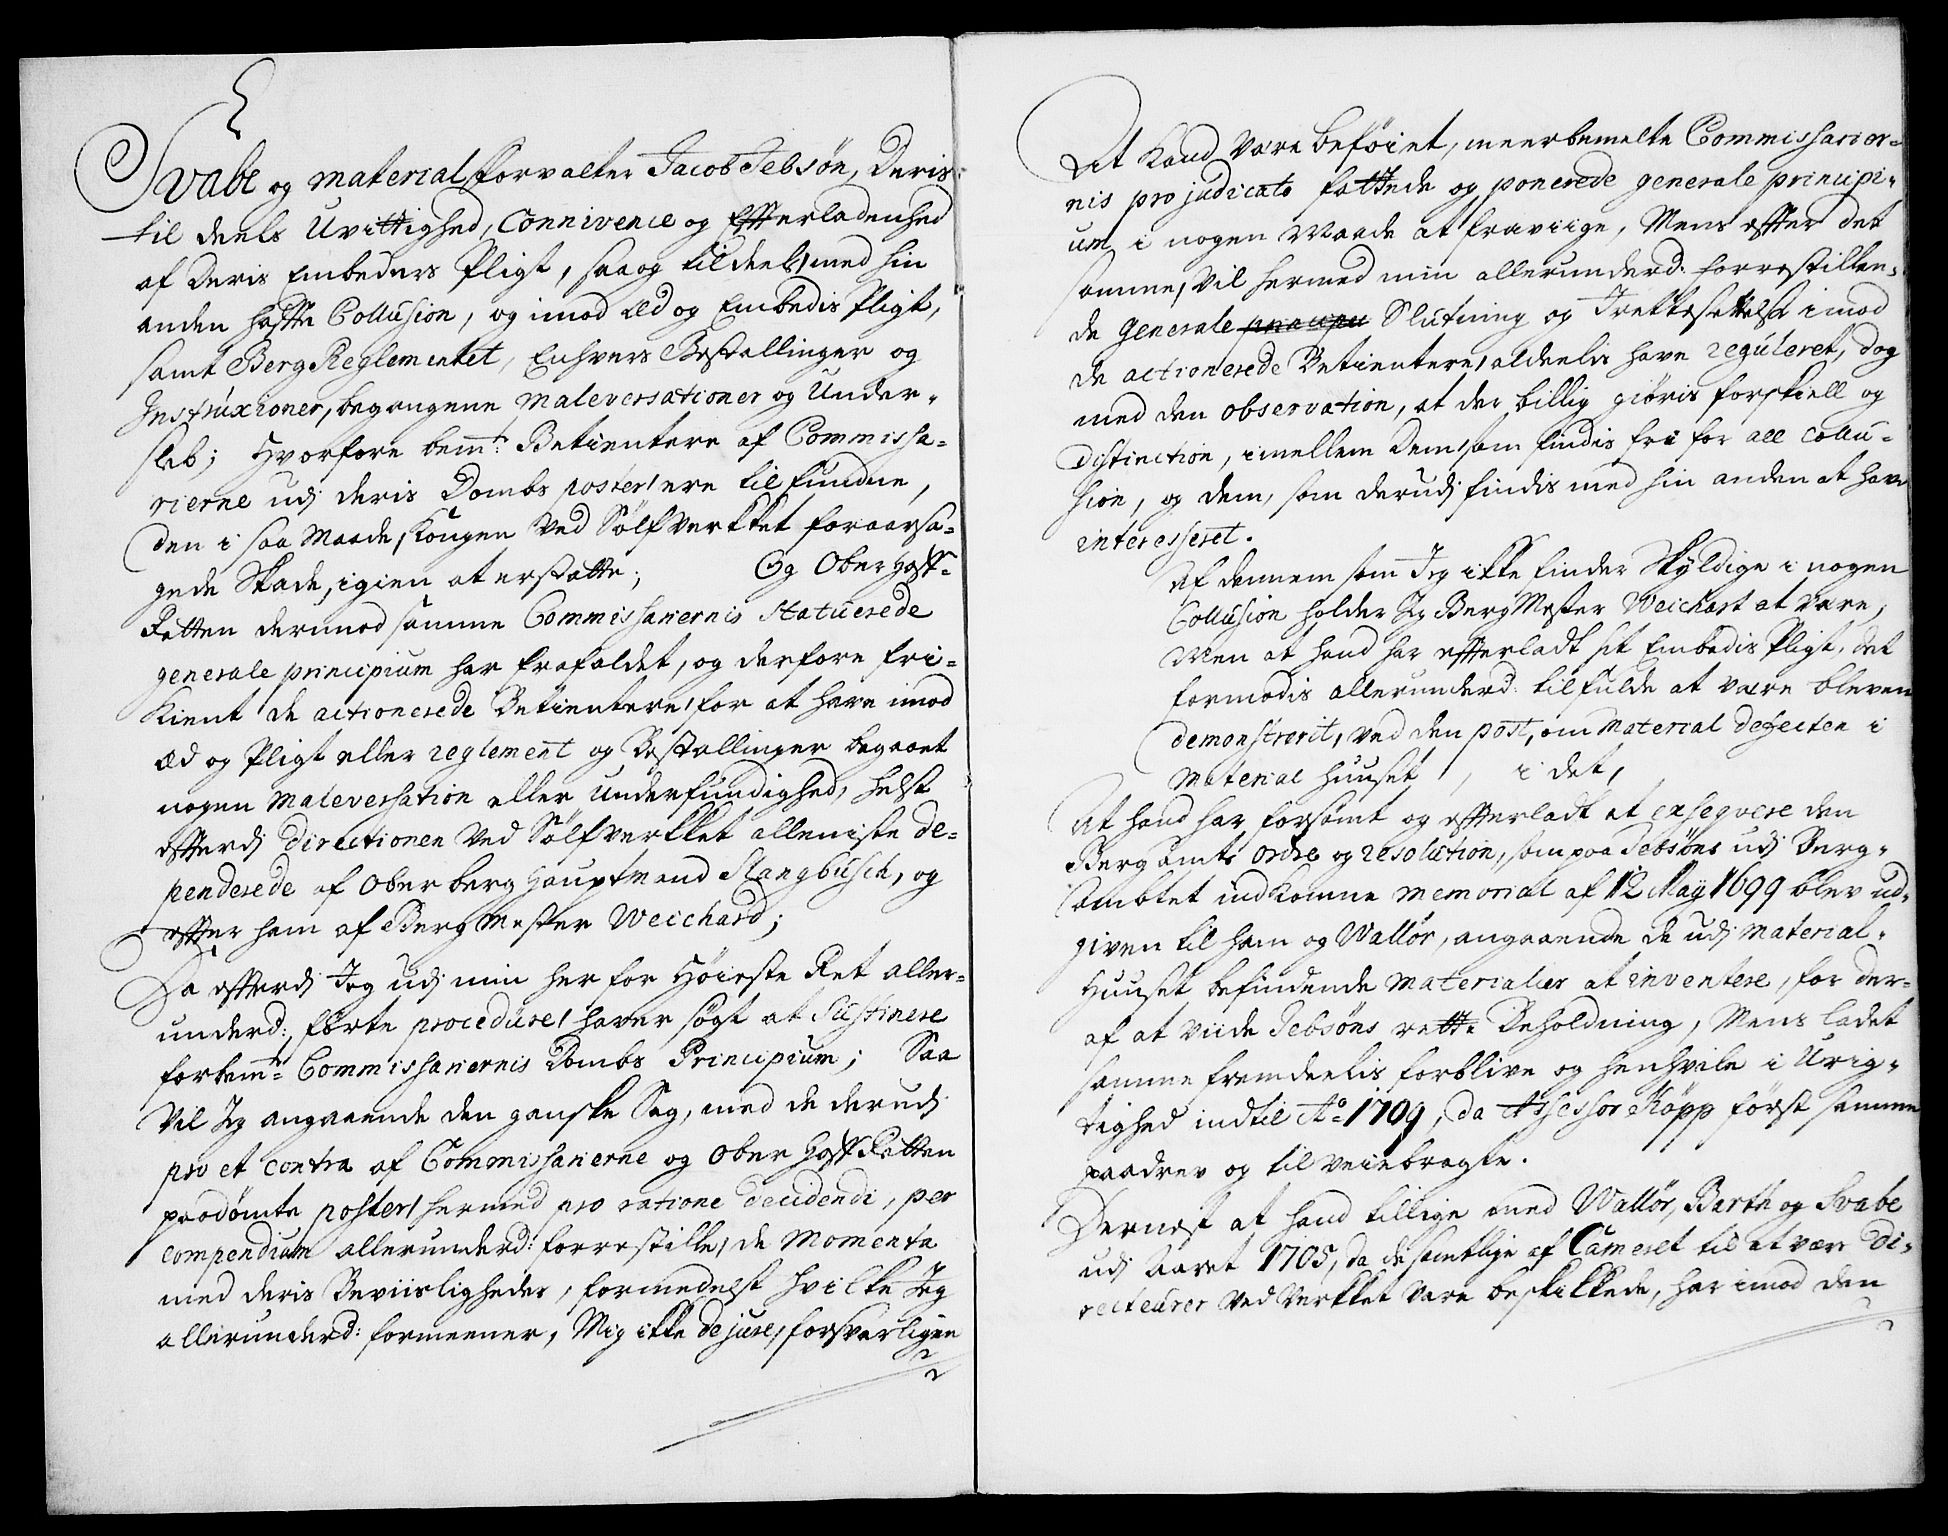 Svabe og material forvalter Jacob Jebsøn, Deris
til deels Uvittighed, Connivence og Efterladenhed
af Deris Embeders Pligt, saa og til deels, med hin
anden hafte Collusion, og imod æd og Embedis Pligt,
samt Berg Reglementet, Enhvers Bestallinger og
Instruxioner, begangene maleversationer og Under-
sleb; Hvorfore bemte: Betientere af Commissa-
rierne udj deris Dombs poster, ere til fundne,
den i saa Maade, Kongen Ved Sølfverkket foraarsa-
gede Skade, igien at erstatte; Og Ober Hoff-
Retten derimod samme Commissariernis Statuerede
generale principium har frafaldet, og derfore fri-
kient de actionerede Betientere, for at have imod
æd og Pligt eller reglement og Bestallinger begaaet
nogen maleversation eller Underfundighed, helst
efterdj Directionen Ved Sølfverkket alleniste de-
penderede af Oberberg Hauptmand Slangbusch, og
efter ham af Berg Mester Weichard;
Da efterdj Jeg udj min her for Høieste Ret aller-
underd: førte procedure, haver søgt at Sustinere
forbemte Commissariernis Dombs Principium; Saa
Vil Jeg angaaende den ganske Sag, med de derudj
pro et contra af Commissarierne og Ober Hoff Retten
paadømte poster, hermed pro ratione decidendi, per
compendium allerunderd: forrestille, de Momenta
med deris Beviisligheder, formedelst hvilke Jeg
allerunderd: formeener, Mig ikke de jure, forsvarligen
Det kand Være beføiet, meerbemelte Commissarier-
nis pro judicato fattede og ponerede generale principi-
um, i nogen Maade at fraviige, Mens efter det
samme, Vil hermed min allerunderd: forrestillen-
de generale principii Slutning og Irettesættelse imod
de actionerede Betientere, aldeelis have reguleret, dog
med den observation, at der billig giøris forskiell og
Distinction, imellem dem, som findis fri for all collu-
sion, og dem, som derudj findis med hin anden at have
interesseret.
Af dennem som Jeg ikke finder Skyldige i nogen
Collusion holder Jeg BergMester Weichart at Være,
Men at hand har efterladt sit Embedis Pligt, det
formodis allerunderd: tilfulde at være bleven
demonstrerit, ved den post, om Material defecten i
Material Huuset, i det,
At hand har forsømt og efterladt at exseqvere den
Bergamts ordre og resolution, som paa Jebsøns udj Berg-
Ambtet indkomne memorial af 12 Maÿ 1699 blev ud-
given til ham og Wallør, angaaende de udj material-
Huuset befindende materialier at inventere, for der-
af at viide Jebsøns rette Beholdning, Mens ladet
samme fremdeelis forblive og henhvile i Urig-
tighed indtil Ao 1709, da Assessor Køpp først samme
paadrev og til veiebragte.
Dernest at hand tillige med Wallør, Barth og Svabe
udj Aaret 1705, da de samtlige af Cameret til at være Di-
recteurer ved verkket vare beskikkede, har imod den